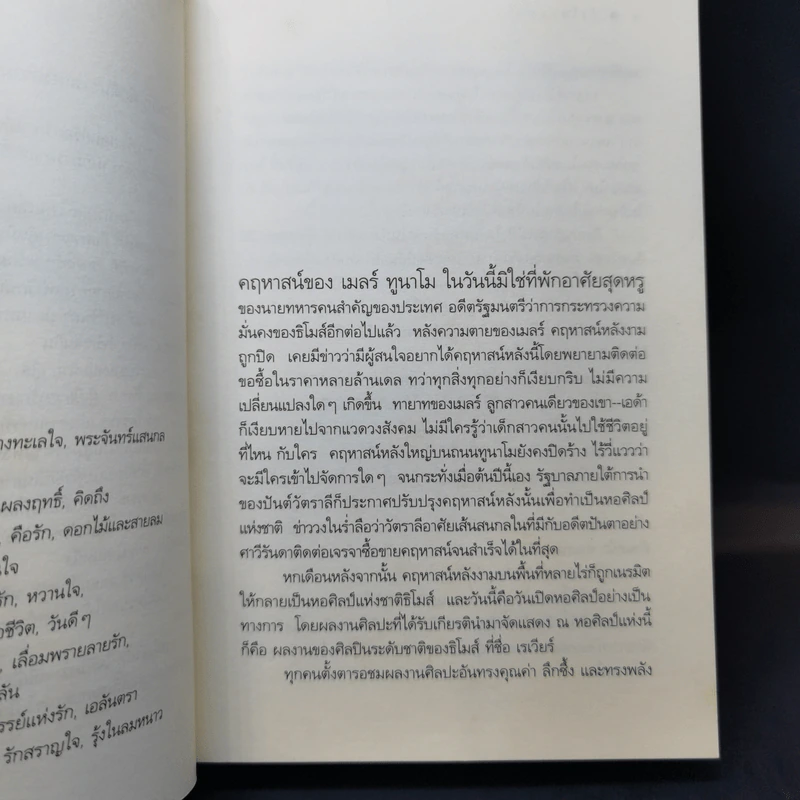 างทะเลใจ, พระจันทร์แสนกล
ผลงฤทธิ์, คิดถึง
, คือรัก, ดอกไม้และสายลม
นใจ
รัก, หวานใจ,
อชีวิต, วันดีๆ
, เลื่อมพรายลายรัก,
ลัน
รรย์แห่งรัก, เอลันตรา
รักสราญใจ, รุ้งในลมหนาว
คฤหาสน์ของ เมลร์ ทูนาโม ในวันนี้มิใช่ที่พักอาศัยสุดหรู
ของนายทหารคนสำคัญของประเทศ อดีตรัฐมนตรีว่าการกระทรวงความ
มั่นคงของธิโมส์อีกต่อไปแล้ว หลังความตายของเมลร์ คฤหาสน์หลังงาม
ถูกปิด เคยมีข่าวว่ามีผู้สนใจอยากได้คฤหาสน์หลังนี้โดยพยายามติดต่อ
ขอซื้อในราคาหลายล้านเดล ทว่าทุกสิ่งทุกอย่างก็เงียบกริบ ไม่มีความ
เปลี่ยนแปลงใดๆ เกิดขึ้น ทายาทของเมลร์ ลูกสาวคนเดียวของเขา--เอด้า
ก็เงียบหายไปจากแวดวงสังคม ไม่มีใครรู้ว่าเด็กสาวคนนั้นไปใช้ชีวิตอยู่
ที่ไหน กับใคร คฤหาสน์หลังใหญ่บนถนนทูนาโมยังคงปิดร้าง ไร้วี่แววว่า
จะมีใครเข้าไปจัดการใดๆ จนกระทั่งเมื่อต้นปีนี้เอง รัฐบาลภายใต้การนำ
ของปันต์วัตราลีก็ประกาศปรับปรุงคฤหาสน์หลังนั้นเพื่อทำเป็นหอศิลป์
แห่งชาติ ข่าววงในร่ำลือว่าวัตราลีอาศัยเส้นสนกลในที่มีกับอดีตปันตาอย่าง
ศาวีรันดาติดต่อเจรจาซื้อขายคฤหาสน์จนสำเร็จได้ในที่สุด
หกเดือนหลังจากนั้น คฤหาสน์หลังงามบนพื้นที่หลายไร่ก็ถูกเนรมิต
ให้กลายเป็นหอศิลป์แห่งชาติธิโมส์ และวันนี้คือวันเปิดหอศิลป์อย่างเป็น
ทางการ โดยผลงานศิลปะที่ได้รับเกียรตินำมาจัดแสดง ณ หอศิลป์แห่งนี้
ก็คือ ผลงานของศิลปินระดับชาติของธิโมส์ ที่ชื่อ เรเวียร์
ทุกคนตั้งตารอชมผลงานศิลปะอันทรงคุณค่า ลึกซึ้ง และทรงพลัง